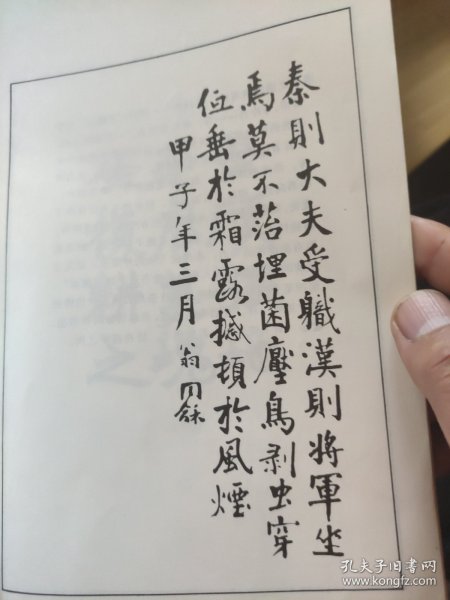 秦則大夫受職漢則將軍坐
焉莫不菭埋菌壓鳥剥虫穿
低垂於霜露撼頓於風煙
甲子年三月翁同龢
孔夫子旧书网
www.kongfz.com